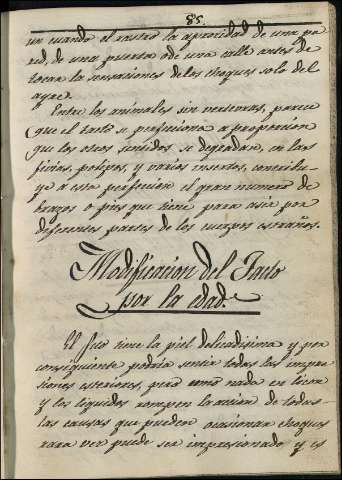 85.
un cuando el rastro la aprocidad de una pa
red, de una puerta o de una calle antes de
tocar la sensaciones de los choques solo del
ayre.
Entre los animales sin vertevras, parece
que el tacto se perfeciona a proporcion
que los otros sentidos se degradan, en las
polipos, y varios insectos, contribu-
ye a esta perfecion el gran numero de
brazos o pies que tiene para asir por
diferentes partes de los cuerpos estraños.
Modificacion del Tacto
por la edad.
El feto tiene la piel delicadisima y por
consiguiente podria sentir todas las impre
siones esteriores, pero como nada en licor
y los liquidos rompen la accion de todas
las causas que pueden ocasionar choques
rara vez puede ser impresionado y es